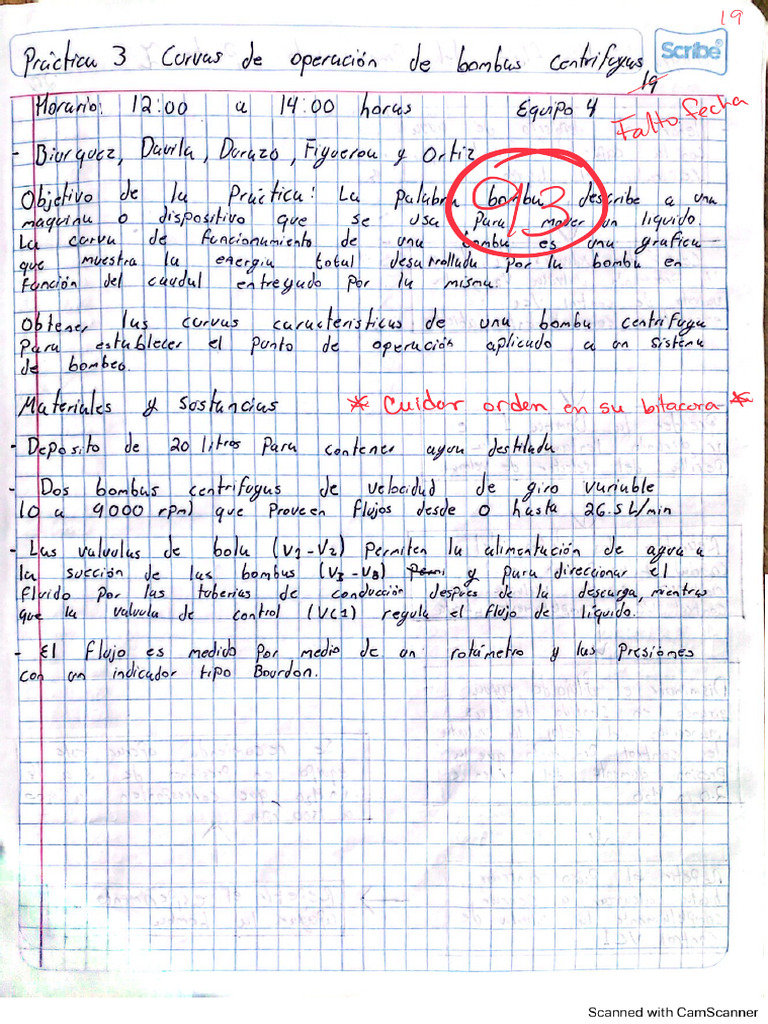 19
Práctica 3 Curvas de operación de bombas centrifugas
Scribe
19
Horario: 12:00 a 14:00 horas Equipo 4
Falto fecha
- Biurquez, Davila, Durazo, Figueroa y Ortiz
Objetivo de la Práctica: La palabra bomba describe a una
maquina o dispositivo que se usa para mover un liquido.
93
La curva de funcionamiento de una bomba es una grafica
que muestra la energia total desarrollada por la bomba en
función del caudal entregado por la misma.
Obtener las curvas caracteristicas de una bomba centrifuga
para establecer el punto de operación aplicado a un sistema
de bombeo.
Materiales y sostancias * Cuidar orden en su bitacora *
- Deposito de 20 litros para contener agua destilada
- Dos bombas centrifugas de velocidad de giro variable
(0 a 9000 rpm) que proveen flujos desde 0 hasta 26.5 L/min
- Las valvulas de bola (V1-V2) permiten la alimentación de agua a
la succión de las bombas (V3-V8) y para direccionar el
fluido por las tuberias de conducción despues de la descarga, mientras
que la valvula de control (VC1) regula el flujo de líquido.
- El flujo es medido por medio de un rotámetro y las presiónes
con un indicador tipo Bourdon.
Scanned with CamScanner